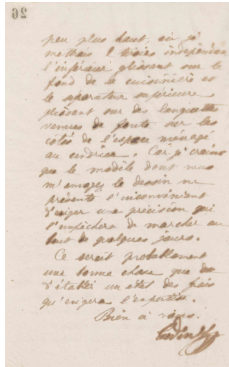 26
peu plus haut, où j'
mettais 2 tiroirs indépendan
l'inférieur glissant sur le
fond de la cuisinière et
le séparateur supérieur
glissant sur des languettes
venues de fonte sur les
côtés de l'espace ménagé
au cendrier. Car je crains
que le modèle dont vous
m'envoyez le dessin ne
présente l'inconvénient
d'exiger une précision qui
l'empêchera de marcher au
bout de quelques jours.
Ce serait probablement
une bonne chose que de
s'établir un état des frais
qu'exigera l'exportation.
Bien à vous.
Godin